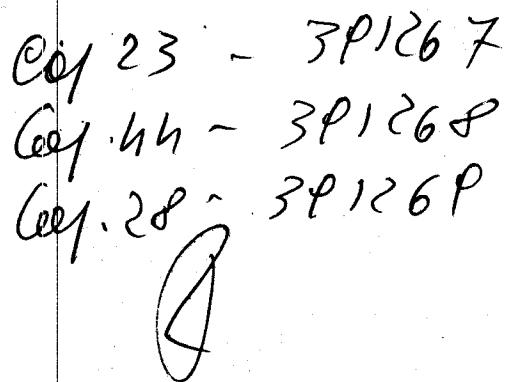 Coy 23 - 391267
Coy. 44 - 391268
Coy. 28 - 391269